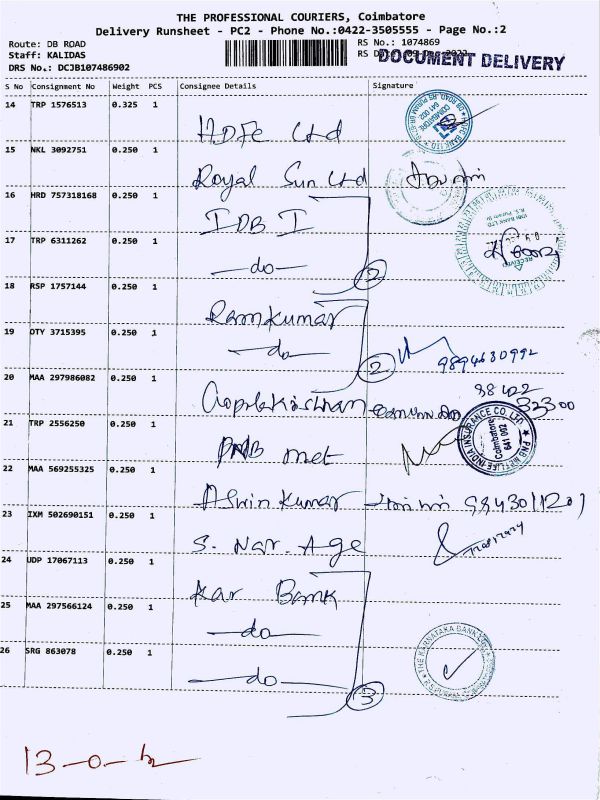 THE PROFESSIONAL COURIERS, Coimbatore
Delivery Runsheet - PC2 - Phone No.:0422-3505555 - Page No.:2
Route: DB ROAD
RS No.: 1074869
Staff: KALIDAS
RS
DOCUMENT DELIVERY
DRS No.: DCJB107486902
S No Consignment No Weight PCS Consignee Details Signature
14 TRP 1576513 0.325 1
HDFC Ltd
15 NKL 3092751 0.250 1
Royal Sun Ltd
16 HRD 757318168 0.250 1
IDBI
17 TRP 6311262 0.250 1
-do-
2
18 RSP 1757144 0.250 1
Ramkumar
19 OTY 3715395 0.250 1
-do-
2
9894630992
20 MAA 297986082 0.250 1
98422
33300
21 TRP 2556250 0.250 1
PNB met
PNB METLIFE INDIA INSURANCE CO. LTD
Coimbatore
641 002
22 MAA 569255325 0.250 1
Aswin Kumar
23 IXM 502690151 0.250 1
S. Nar. Age
24 UDP 17067113 0.250 1
Kar Bank
25 MAA 297566124 0.250 1
-do-
26 SRG 863078 0.250 1
-do-
3
THE KARNATAKA BANK LTD
13-0-